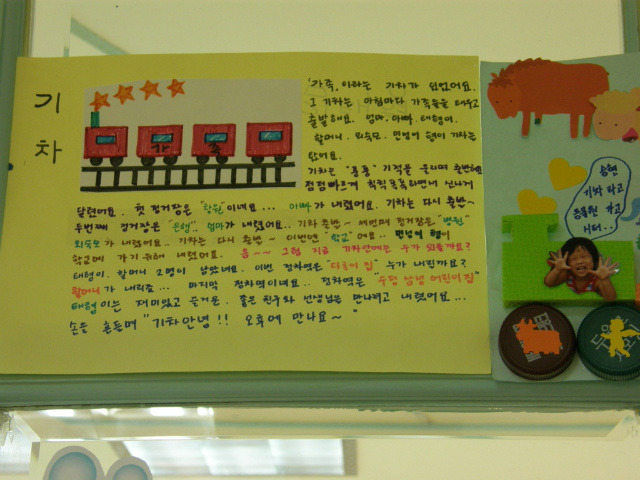 기차
'가족'이라는 기차가 있었어요.
그 기차는 아침마다 가족들을 태우고
출발해요. 엄마, 아빠, 태형이,
할머니, 외숙모, 민성이 형이 기차를
탔어요.
기차는 "훙훙" 기적을 울리며 출발해요
점점빠르게 칙칙폭폭하면서 신나게
가 족
달렸어요. 첫 정거장은 "창원"이네요... 아빠가 내렸어요. 기차는 다시 출발~
두번째 정거장은 "은행", 엄마가 내렸어요.. 기차 출발~ 세번째 정거장은 "병원"
외숙모가 내려요. 기차는 다시 출발~ 이번엔 "학교"에요.. 민성이 형이
학교에 가기위해 내렸어요. 음~~ 그럼 지금 기차안에는 누가 있을까요?
태형이, 할머니 2명이 남았네요. 이번 정차역은 누가 내릴까요?
할머니가 내리죠... 마지막 정차역이네요.. 정차역은 "수정 삼성 어린이집"
태형이는 재미있고 즐거운, 좋은 친구와 선생님을 만나러고 내렸어요...
손을 흔들며 "기차안녕!! 오후에 만나요~"
승현
기차 타고
동물원 가고
싶어..